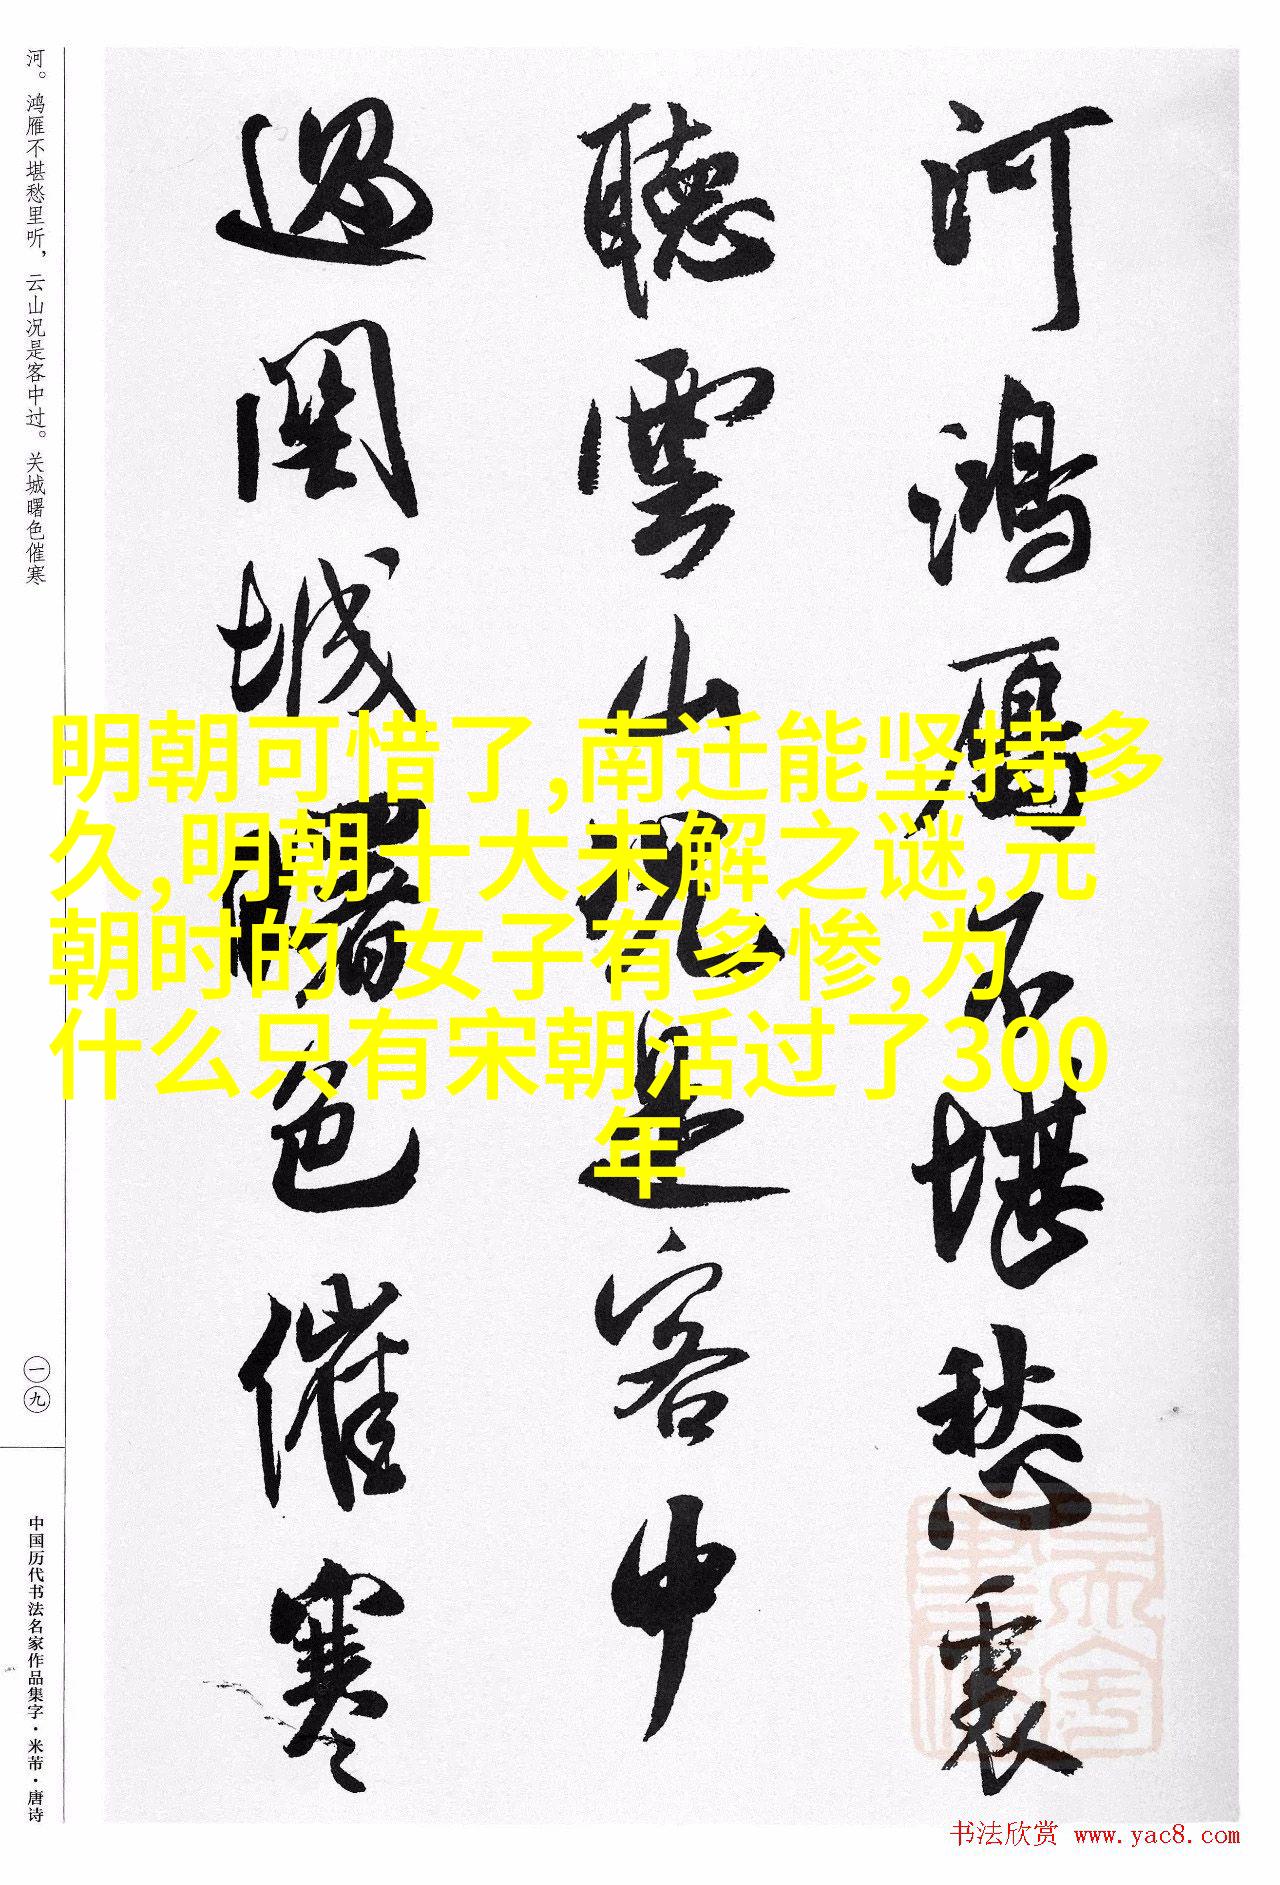 河鴻雁不堪愁裏
聽雲山況是客中
過關城曙色催寒
河。鸿雁不堪愁里听，云山况是客中过。关城曙色催寒
一九
中国历代书法名家作品集字·米芾·唐诗
明朝可惜了,南迁能坚持多
久,明朝十大未解之谜,元
朝时的 女子有多惨,为
什么只有宋朝活过了300
年
书法欣赏 www.yac8.com